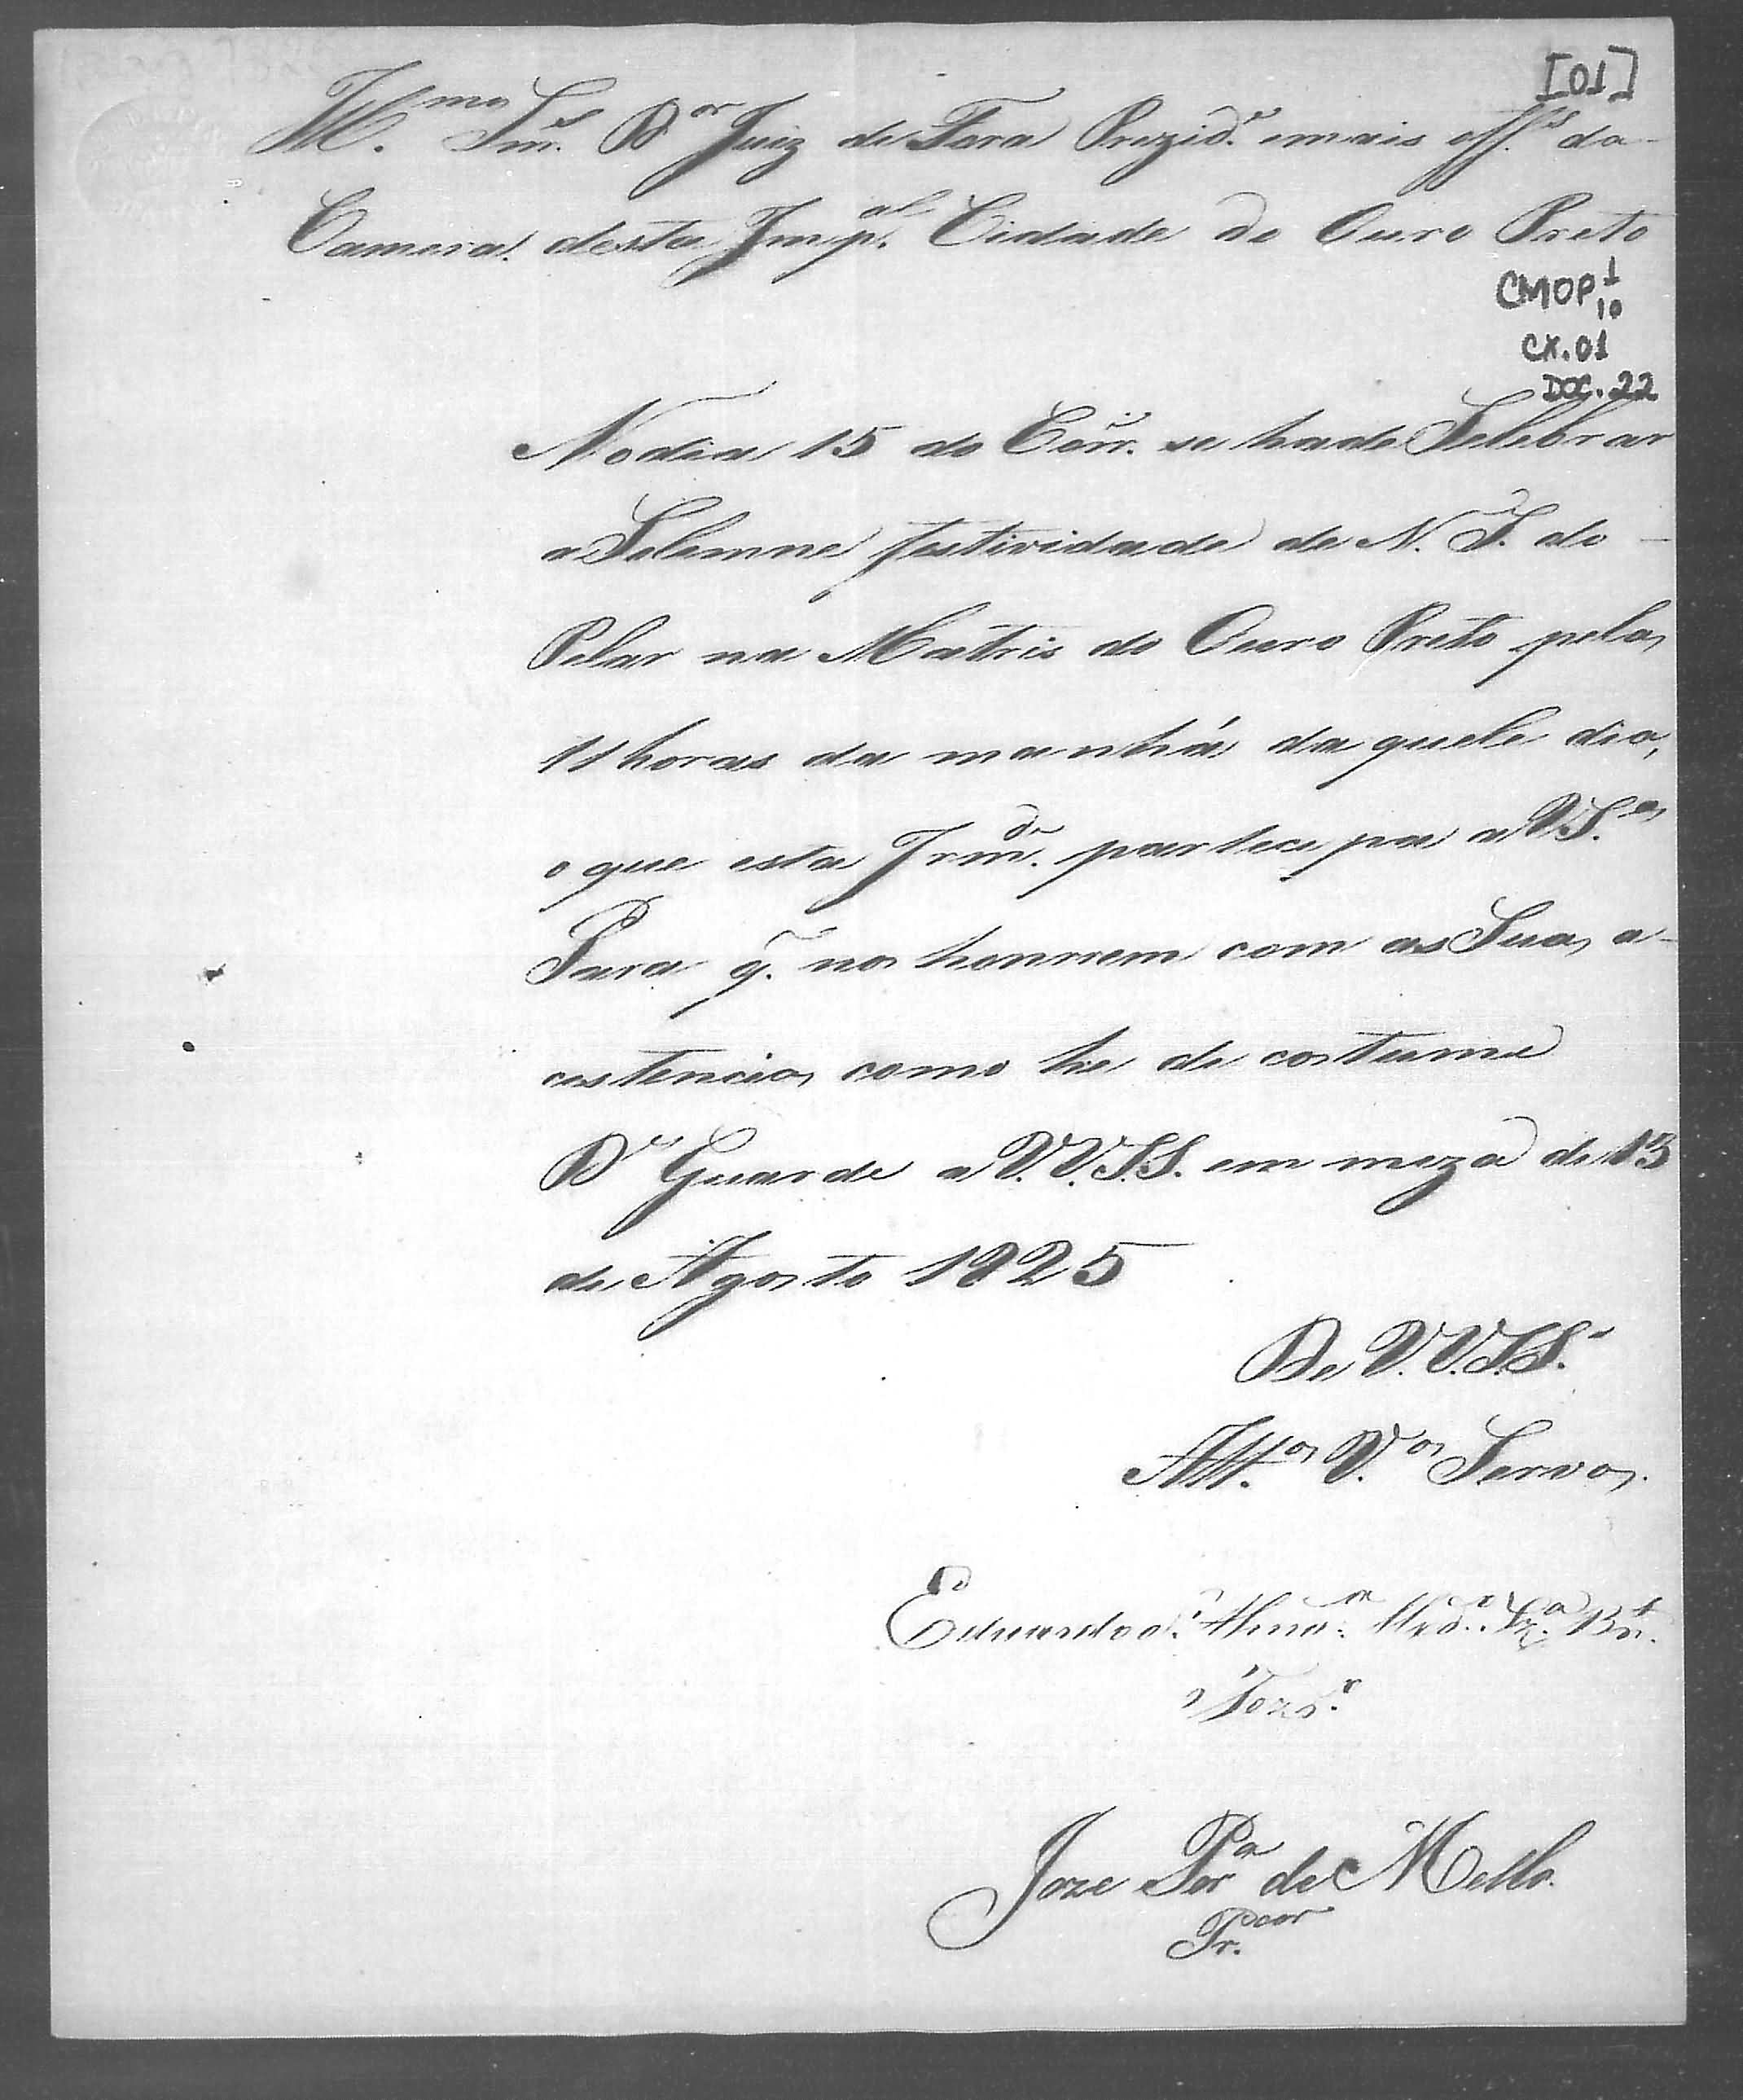 [01]
Ill.mo Snr. Dor Juiz de Fora Prezid.e emais off.es da
Camera desta Imp.al Cidade do Ouro Preto
CMOP 1
10
CX. 01
DOC. 22
No dia 15 do Corr.e se hade Selebrar
a Solemne festividade de N. S.a do
Pilar na Matris do Ouro Preto pelas
11 horas da manhã da quele dia,
o que esta Irm.de partecipa a VS.as
Para q. nos honrrem com as Suas a-
cestencias como he de costume
D.s Guarde a V.V.S.S. em meza de 13
de Agosto 1825
De V.V.S.S.
Att.os V.os Servos.
Eduardo
Joze Per.a de Mello.
Pr.cor